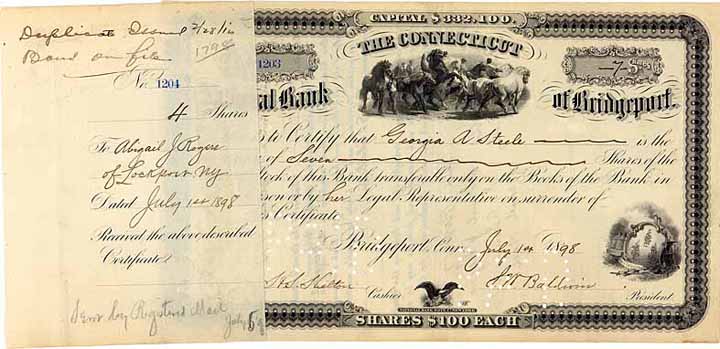 Duplicate Issued 2/28/12
1798
Bond on file
No. 1204
4 Shares
To Abigail J Rogers
of Lockport NY
Dated July 1st 1898
Received the above described
Certificate.
Sent by Registered Mail
July 5
CAPITAL $332,100.
THE CONNECTICUT
1203
-7- Shs
al Bank of Bridgeport.
s to Certify that Georgia A Steele is the
of Seven Shares of the
tock of this Bank transferable only on the Books of the Bank in
son or by her Legal Representative on surrender of
s Certificate
Bridgeport, Conn. July 1st 1898
H.S. Shelton Cashier
Baldwin President
SHARES $100 EACH